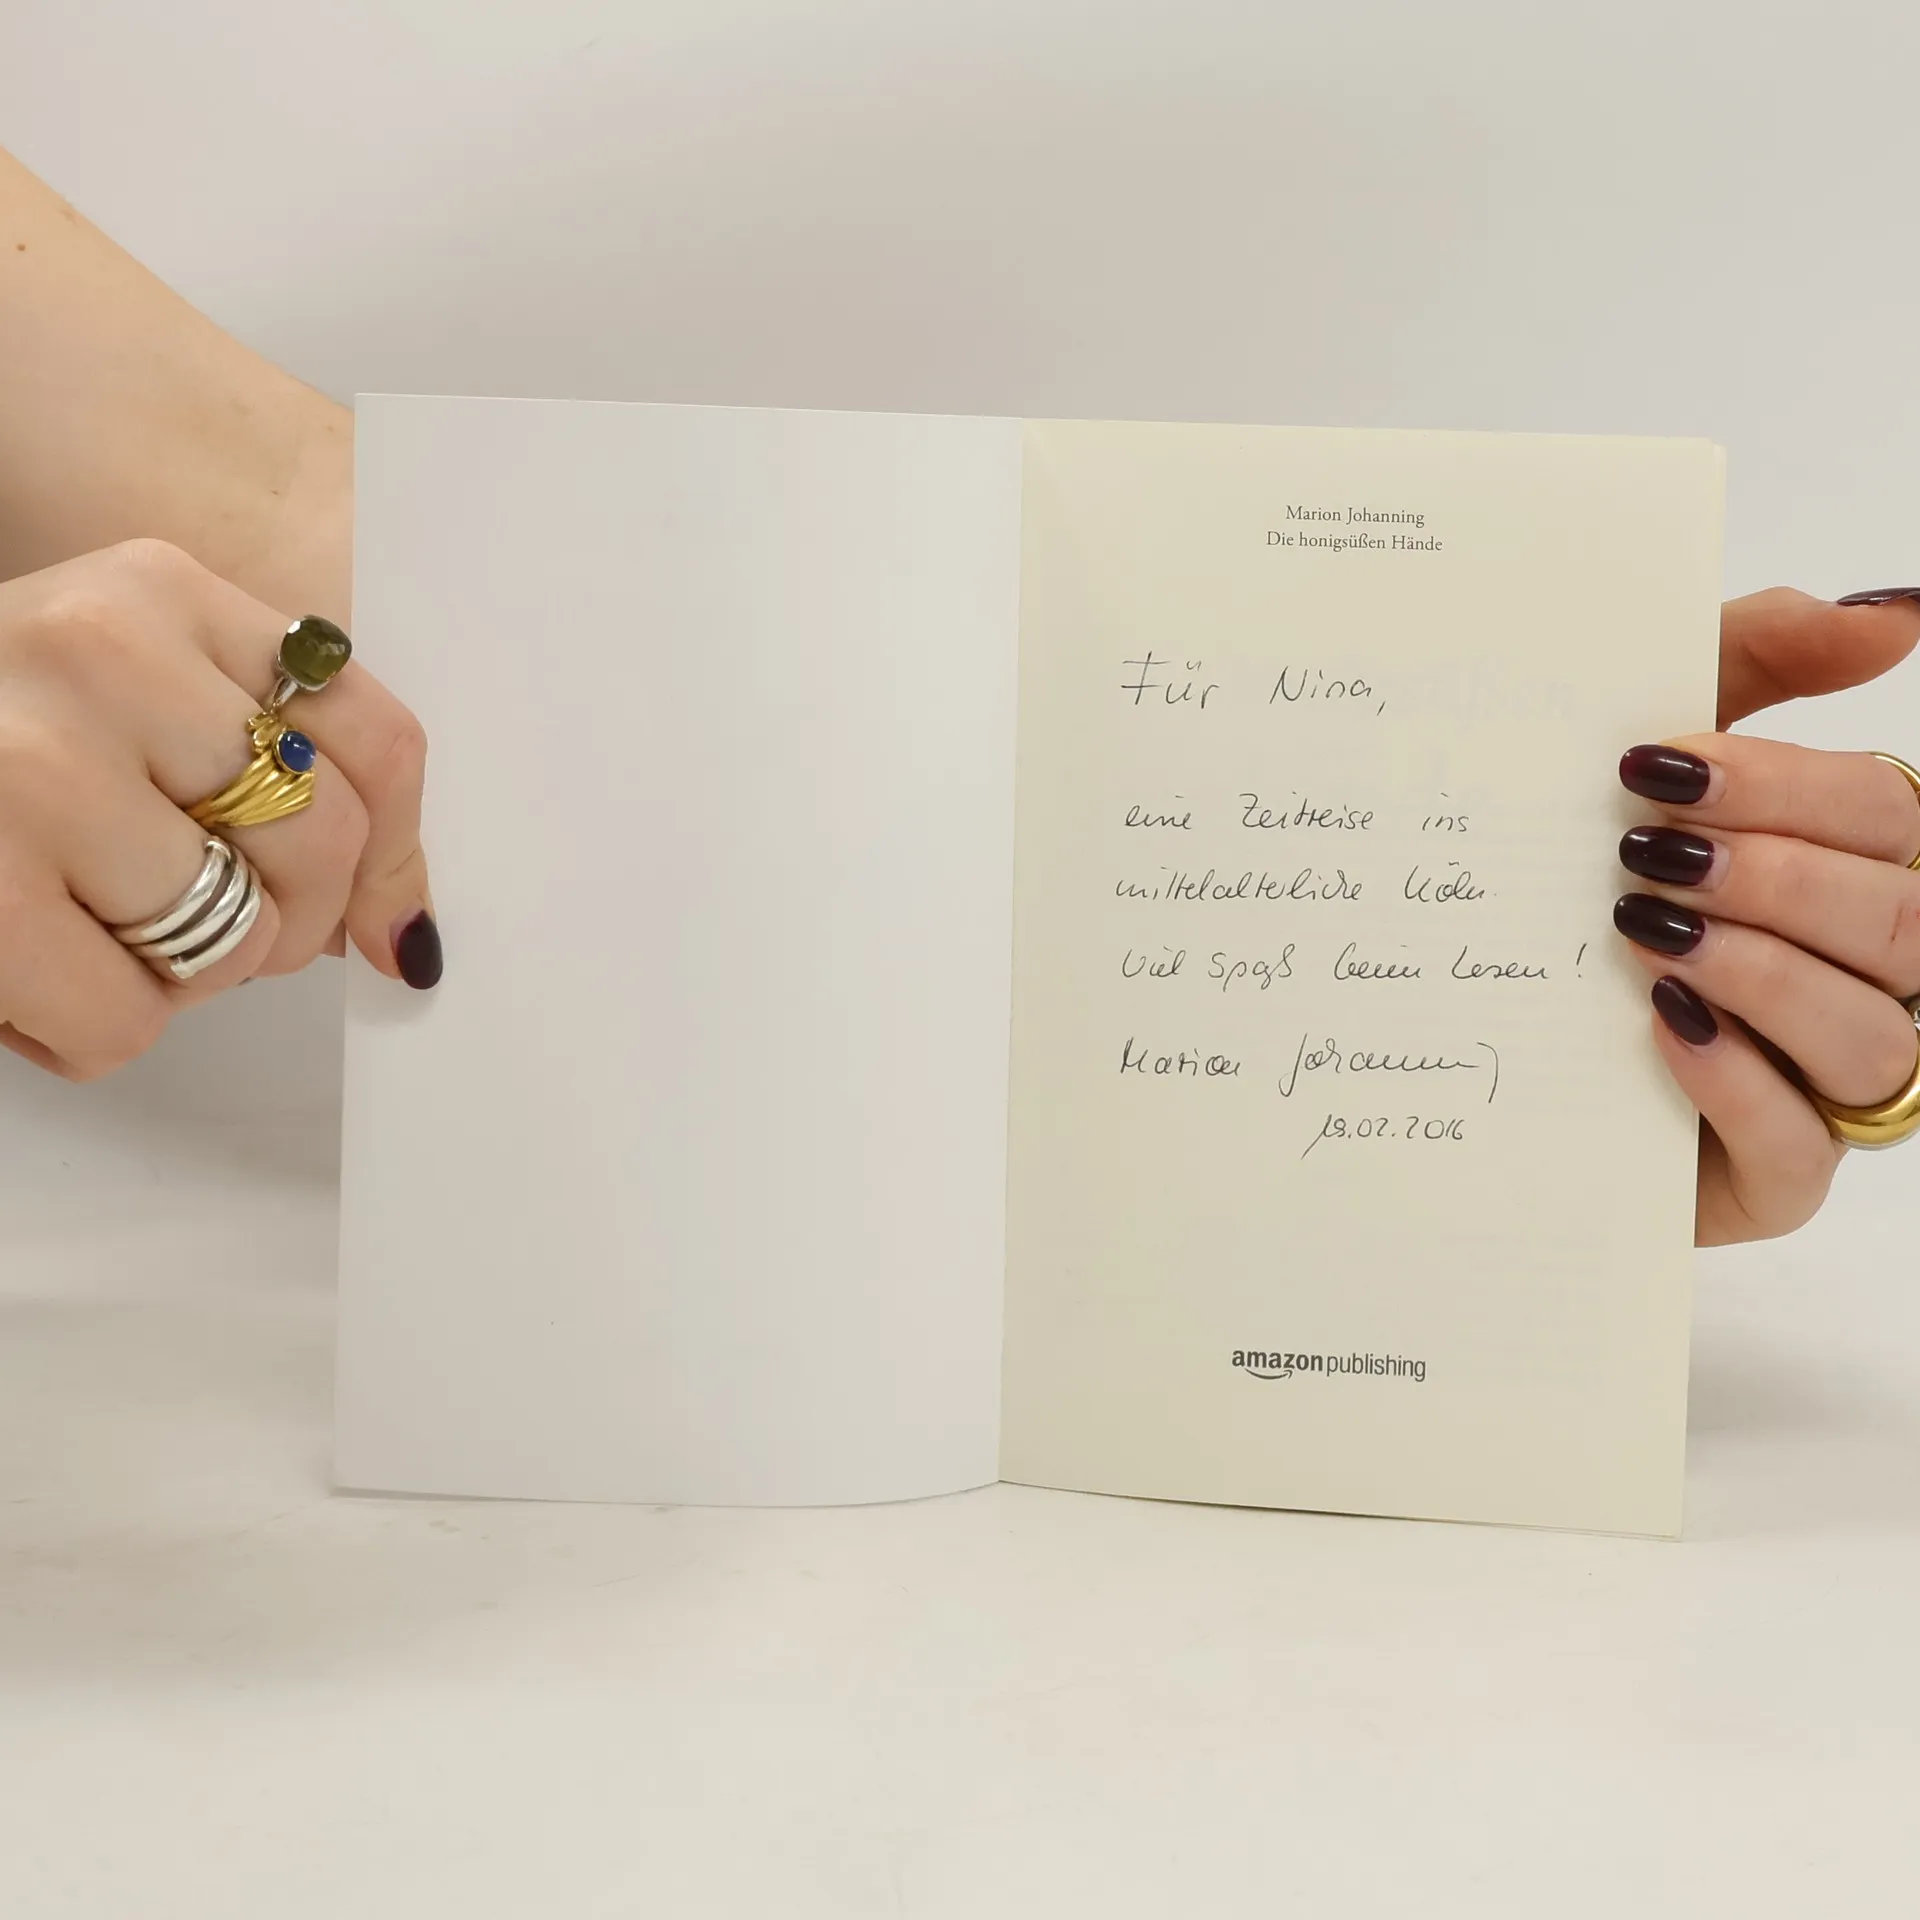 Marion Johanning
Die honigsüßen Hände
Für Nina,
eine Zeitreise ins
mittelalterliche Köln.
Viel Spaß beim Lesen!
Marion Johanning
19.02.2016
amazon publishing